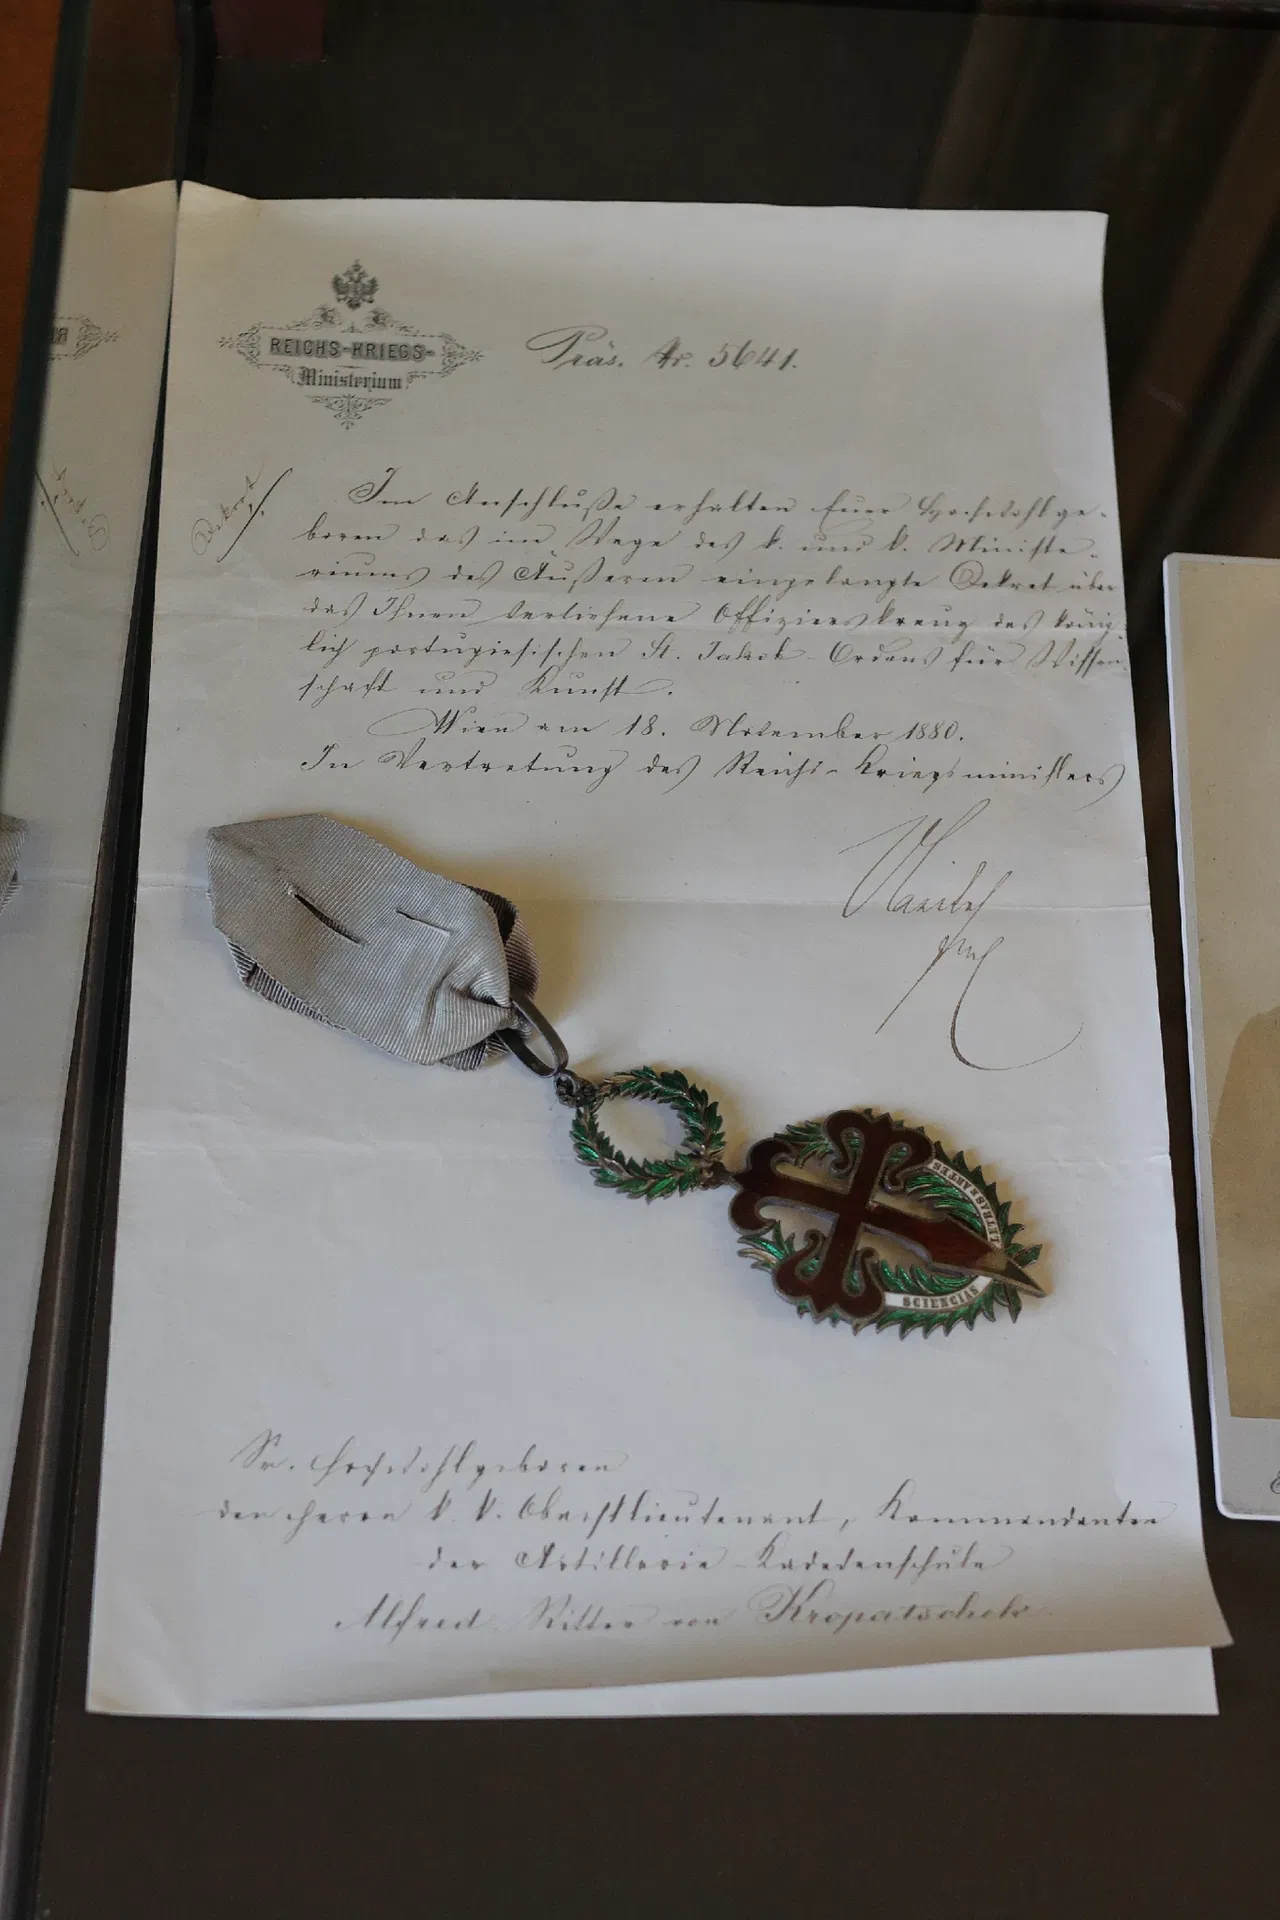 REICHS-KRIEGS-
Ministerium
Präs. Nr. 5641.
Dekret
Im Anschluße erhalten Euer Hochwohlge-
boren das im Wege des k. und k. Ministe-
riums des Äußeren eingelangte Dekret über
das Ihnen verliehene Offizierskreuz des könig-
lich portugiesischen St. Jakob-Ordens für Wissen-
schaft und Kunst.
Wien am 18. November 1880.
In Vertretung des Reichs-Kriegsministers
SCIENCIAS
LETRAS E ARTES
Sr. Hochwohlgeboren
den Herrn k. k. Oberstlieutenant, Kommandanten
der Artillerie-Kadedenschule
Alfred Ritter von Kropatschek